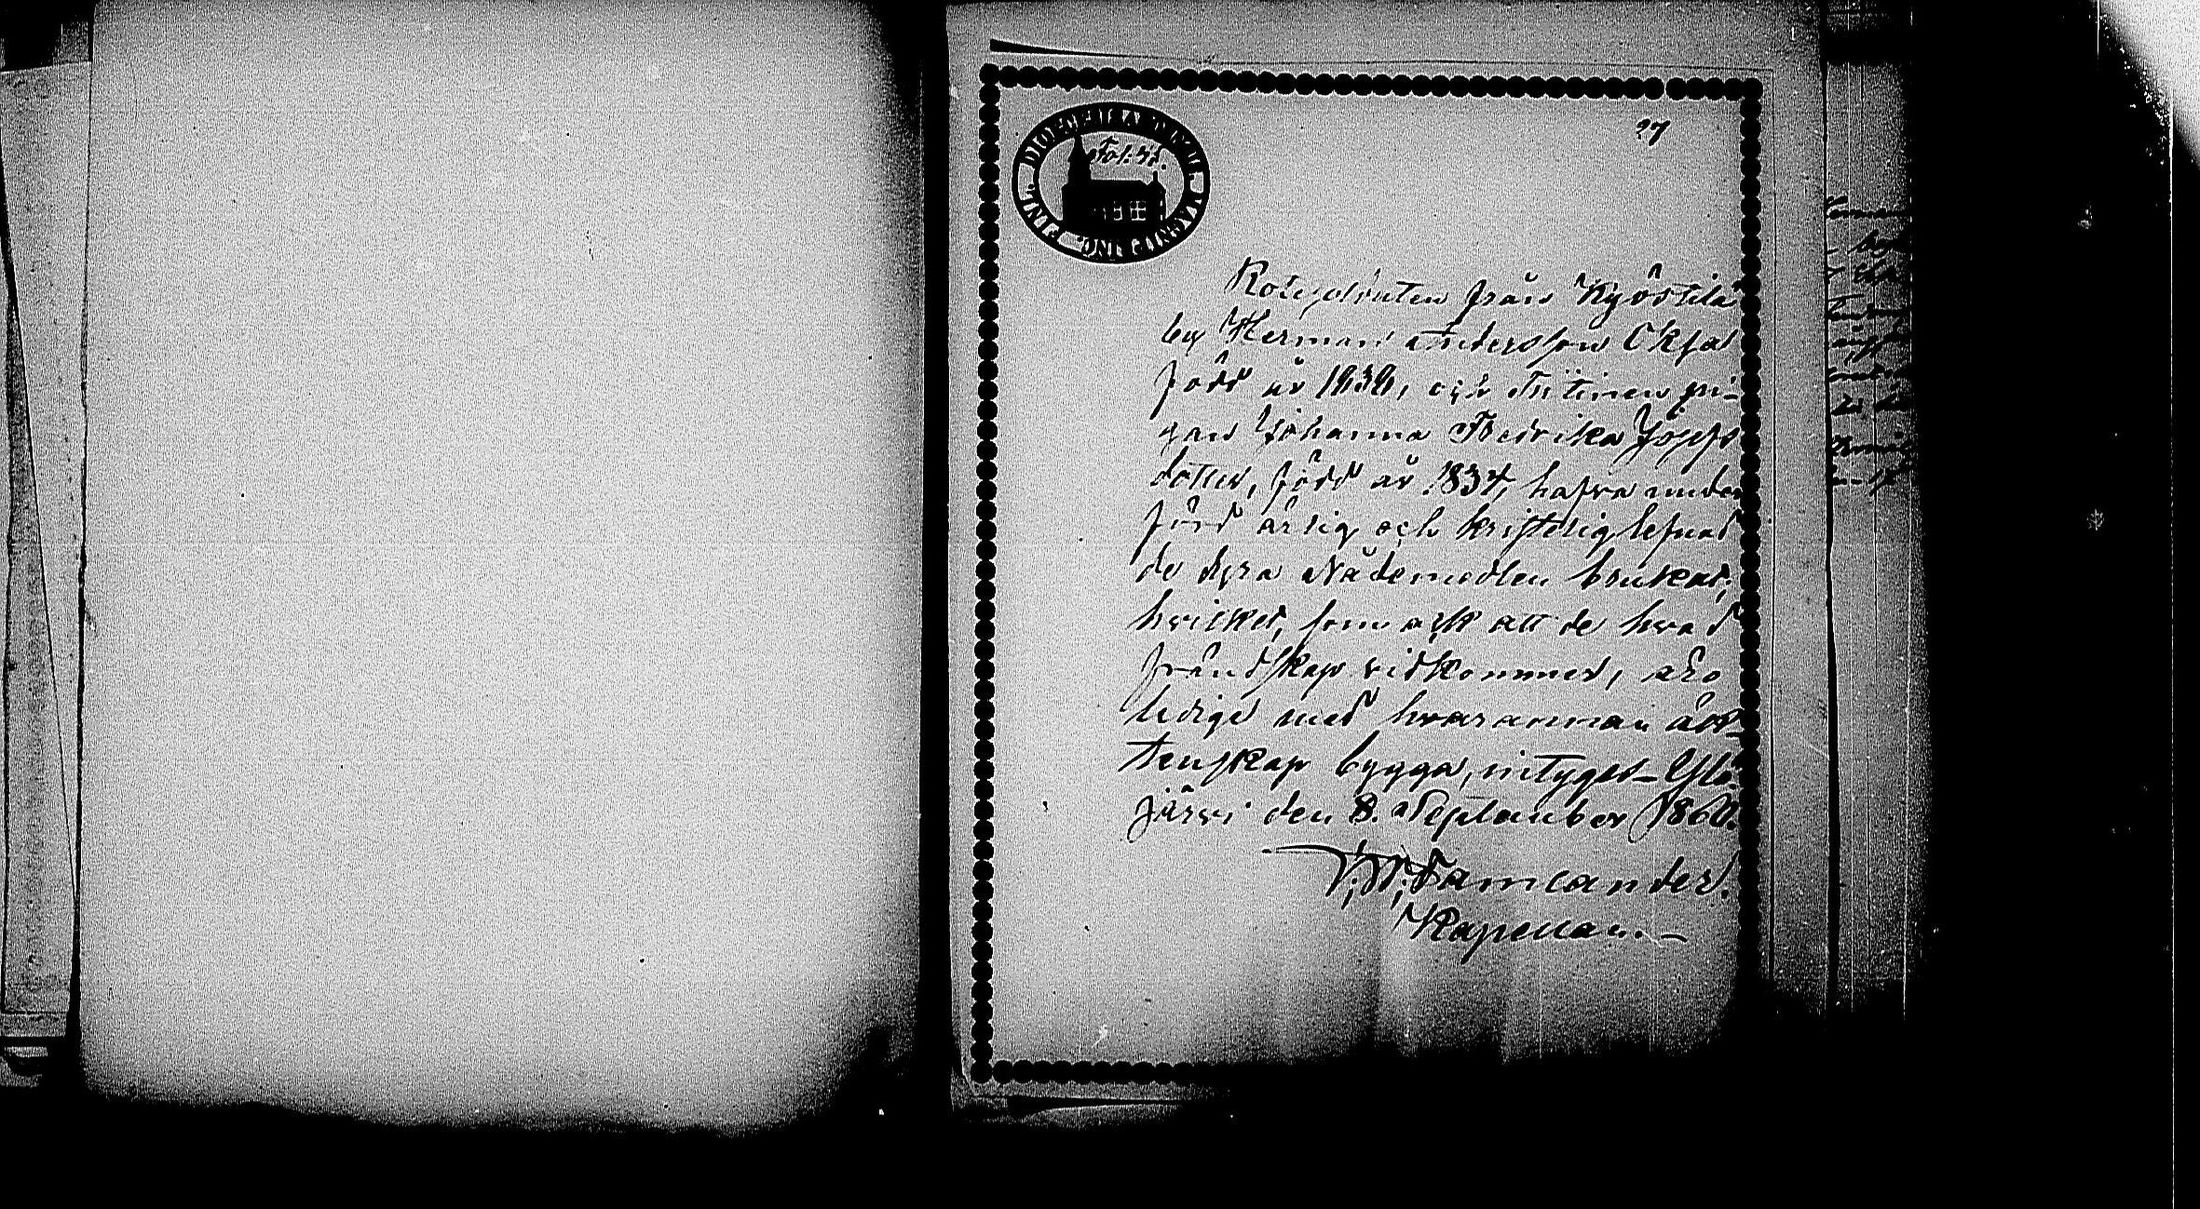 27
Fol: 
Rotesoldaten från Kyöstilä
by Herman Andersson Oksa
född år 183, och pi-
gan Johanna Fredrika Josefs
dotter, född år 1834, hafva under
förd ärlig och kristelig lefnad
de dyra Nådemedlen brukat,
hvilket, som ock att de hvad
frändskap vidkommer, äro
lediga med hvarannan äkt-
tenskap bygga, intygar Ylö-
järvi den 8. September 1860.
Tamlander.
Kapellan.